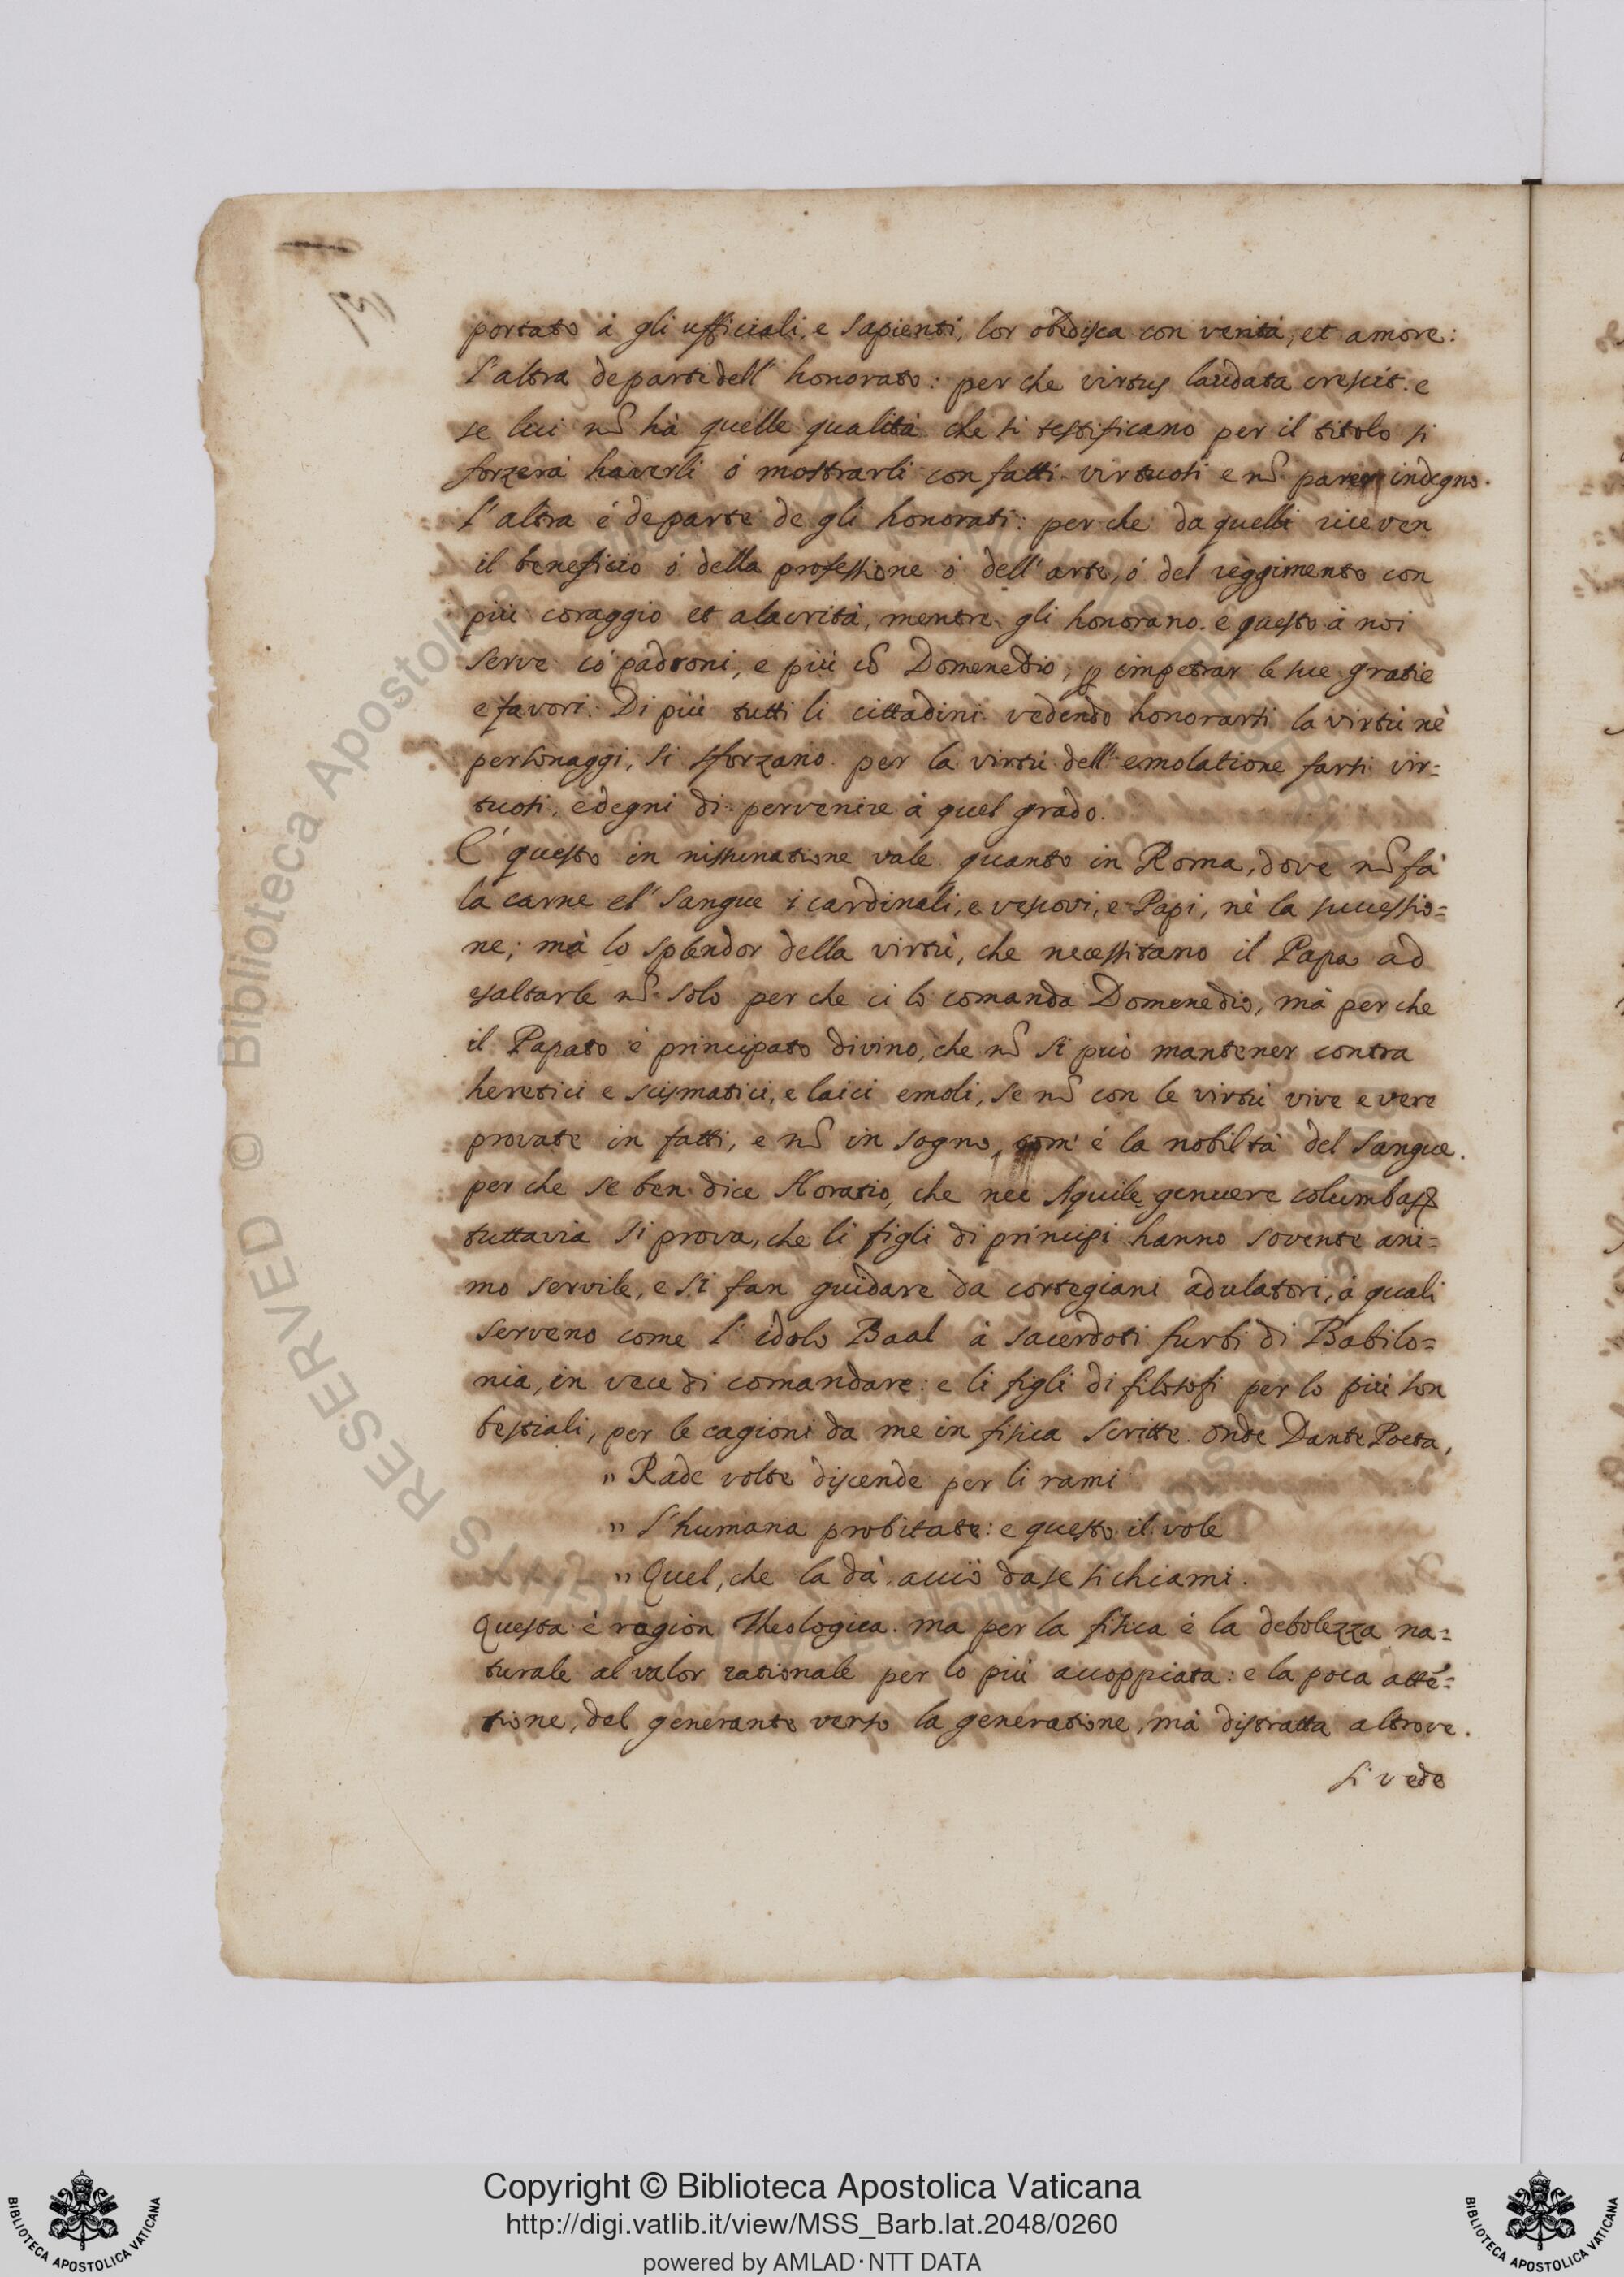 portato à gli ufficiali, e sapienti, lor obedisca con verità, et amore:
l'altra departe dell' honorato: per che virtus laudata crescit. e
se lui nõ hà quelle qualità che si testificano per il titolo si
forzerà haverli ò mostrarli con fatti virtuosi e nõ parer indegno.
l'altra è departe de gli honorati: per che da quelli riceven
il beneficio ò della professione ò dell' arte, ò del reggimento con
più coraggio et alacrità, mentre gli honorano. e questo à noi
serve cõ padroni, e più cõ Domenedio, ꝑ impetrar le sue gratie
e favori. Di più tutti li cittadini vedendo honorarsi la virtù nè
personaggi, si sforzano per la virtù dell' emolatione farsi vir=
tuosi, e degni di pervenire à quel grado.
E' questo in nissunatione vale quanto in Roma, dove nõ fà
la carne el' sangue i cardinali, e vescovi, e Papi, nè la successio=
ne; mà lo splendor della virtù, che necessitano il Papa ad
esaltarle nõ solo per che ci lò comanda Domenedio, mà per che
il Papato è principato divino, che nõ si può mantener contra
heretici e scismatici, e laici emoli, se nõ con le virtù vive e vere
provate in fatti, e nõ in sogno, com' è la nobiltà del sangue.
per che se ben dice Horatio, che nec Aquile genuere columbas
tuttavia si prova, che li figli di principi hanno sovente ani=
mo servile, e si fan guidare da cortegiani adulatori, à quali
serveno come l' idolo Baal à sacerdoti furbi di Babilo=
nia, in vece di comandare: e li figli di filosofi per lo più son
bestiali, per le cagioni da me in fisica scritte. onde Dante Poeta,
" Rade volte discende per li rami
" L'humana probitate: e questo il vole
" Quel, che la dà, acciò da se si chiami.
Questa è ragion Theologica. ma per la fisica è la debolezza na=
turale al valor rationale per lo più accoppiata: e la poca attẽ=
tione, del generante verso la generatione, mà distratta altrove.
si vede
Copyright © Biblioteca Apostolica Vaticana
http://digi.vatlib.it/view/MSS_Barb.lat.2048/0260
powered by AMLAD·NTT DATA
BIBLIOTECA APOSTOLICA VATICANA
BIBLIOTECA APOSTOLICA VATICANA